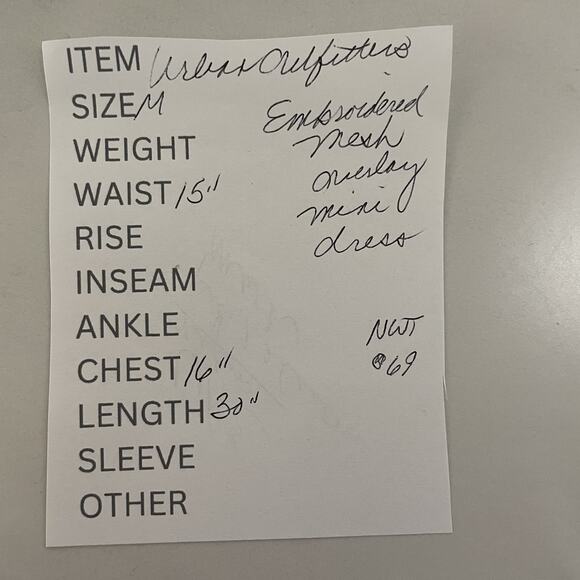 ITEM Urban Outfitters
SIZE M
Embroidered
WEIGHT
Mesh
WAIST 15"
overlay
mini
RISE
dress
INSEAM
ANKLE
NWT
CHEST 16"
$69
LENGTH 32"
SLEEVE
OTHER